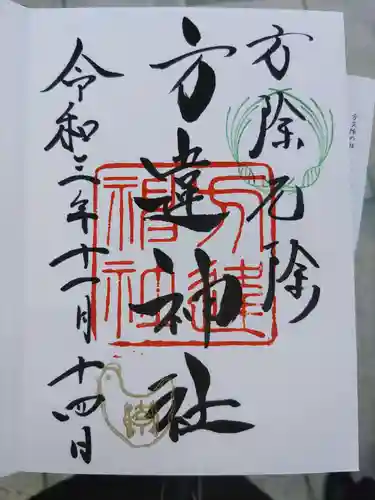 方除元除
方違神社
令和三年十一月十四日
方違
神社